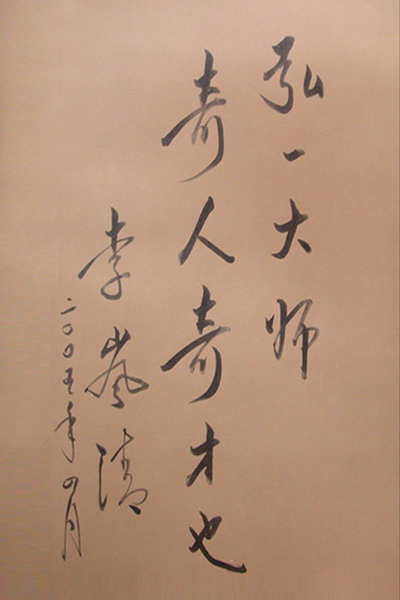 弘一大师
奇人奇才也
李岚清
二〇〇五年四月